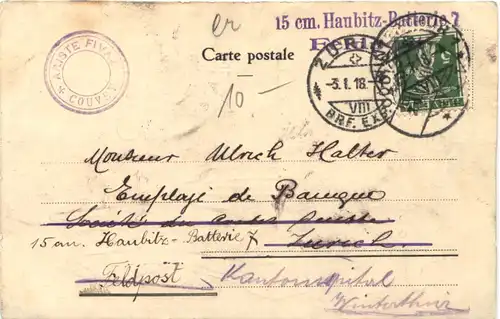 er
15 cm. Haubitz-Batterie 7
Carte postale
ARISTE
COUVET
ZÜRICH
-3.1.18.-
VIII
BRF. EXP.
10-
Monsieur Ulrich Halter
Employé de Banque
Société de
15 cm. Haubitz-Batterie 7 Zurich
Feldpost Kantonsspital
Winterthur